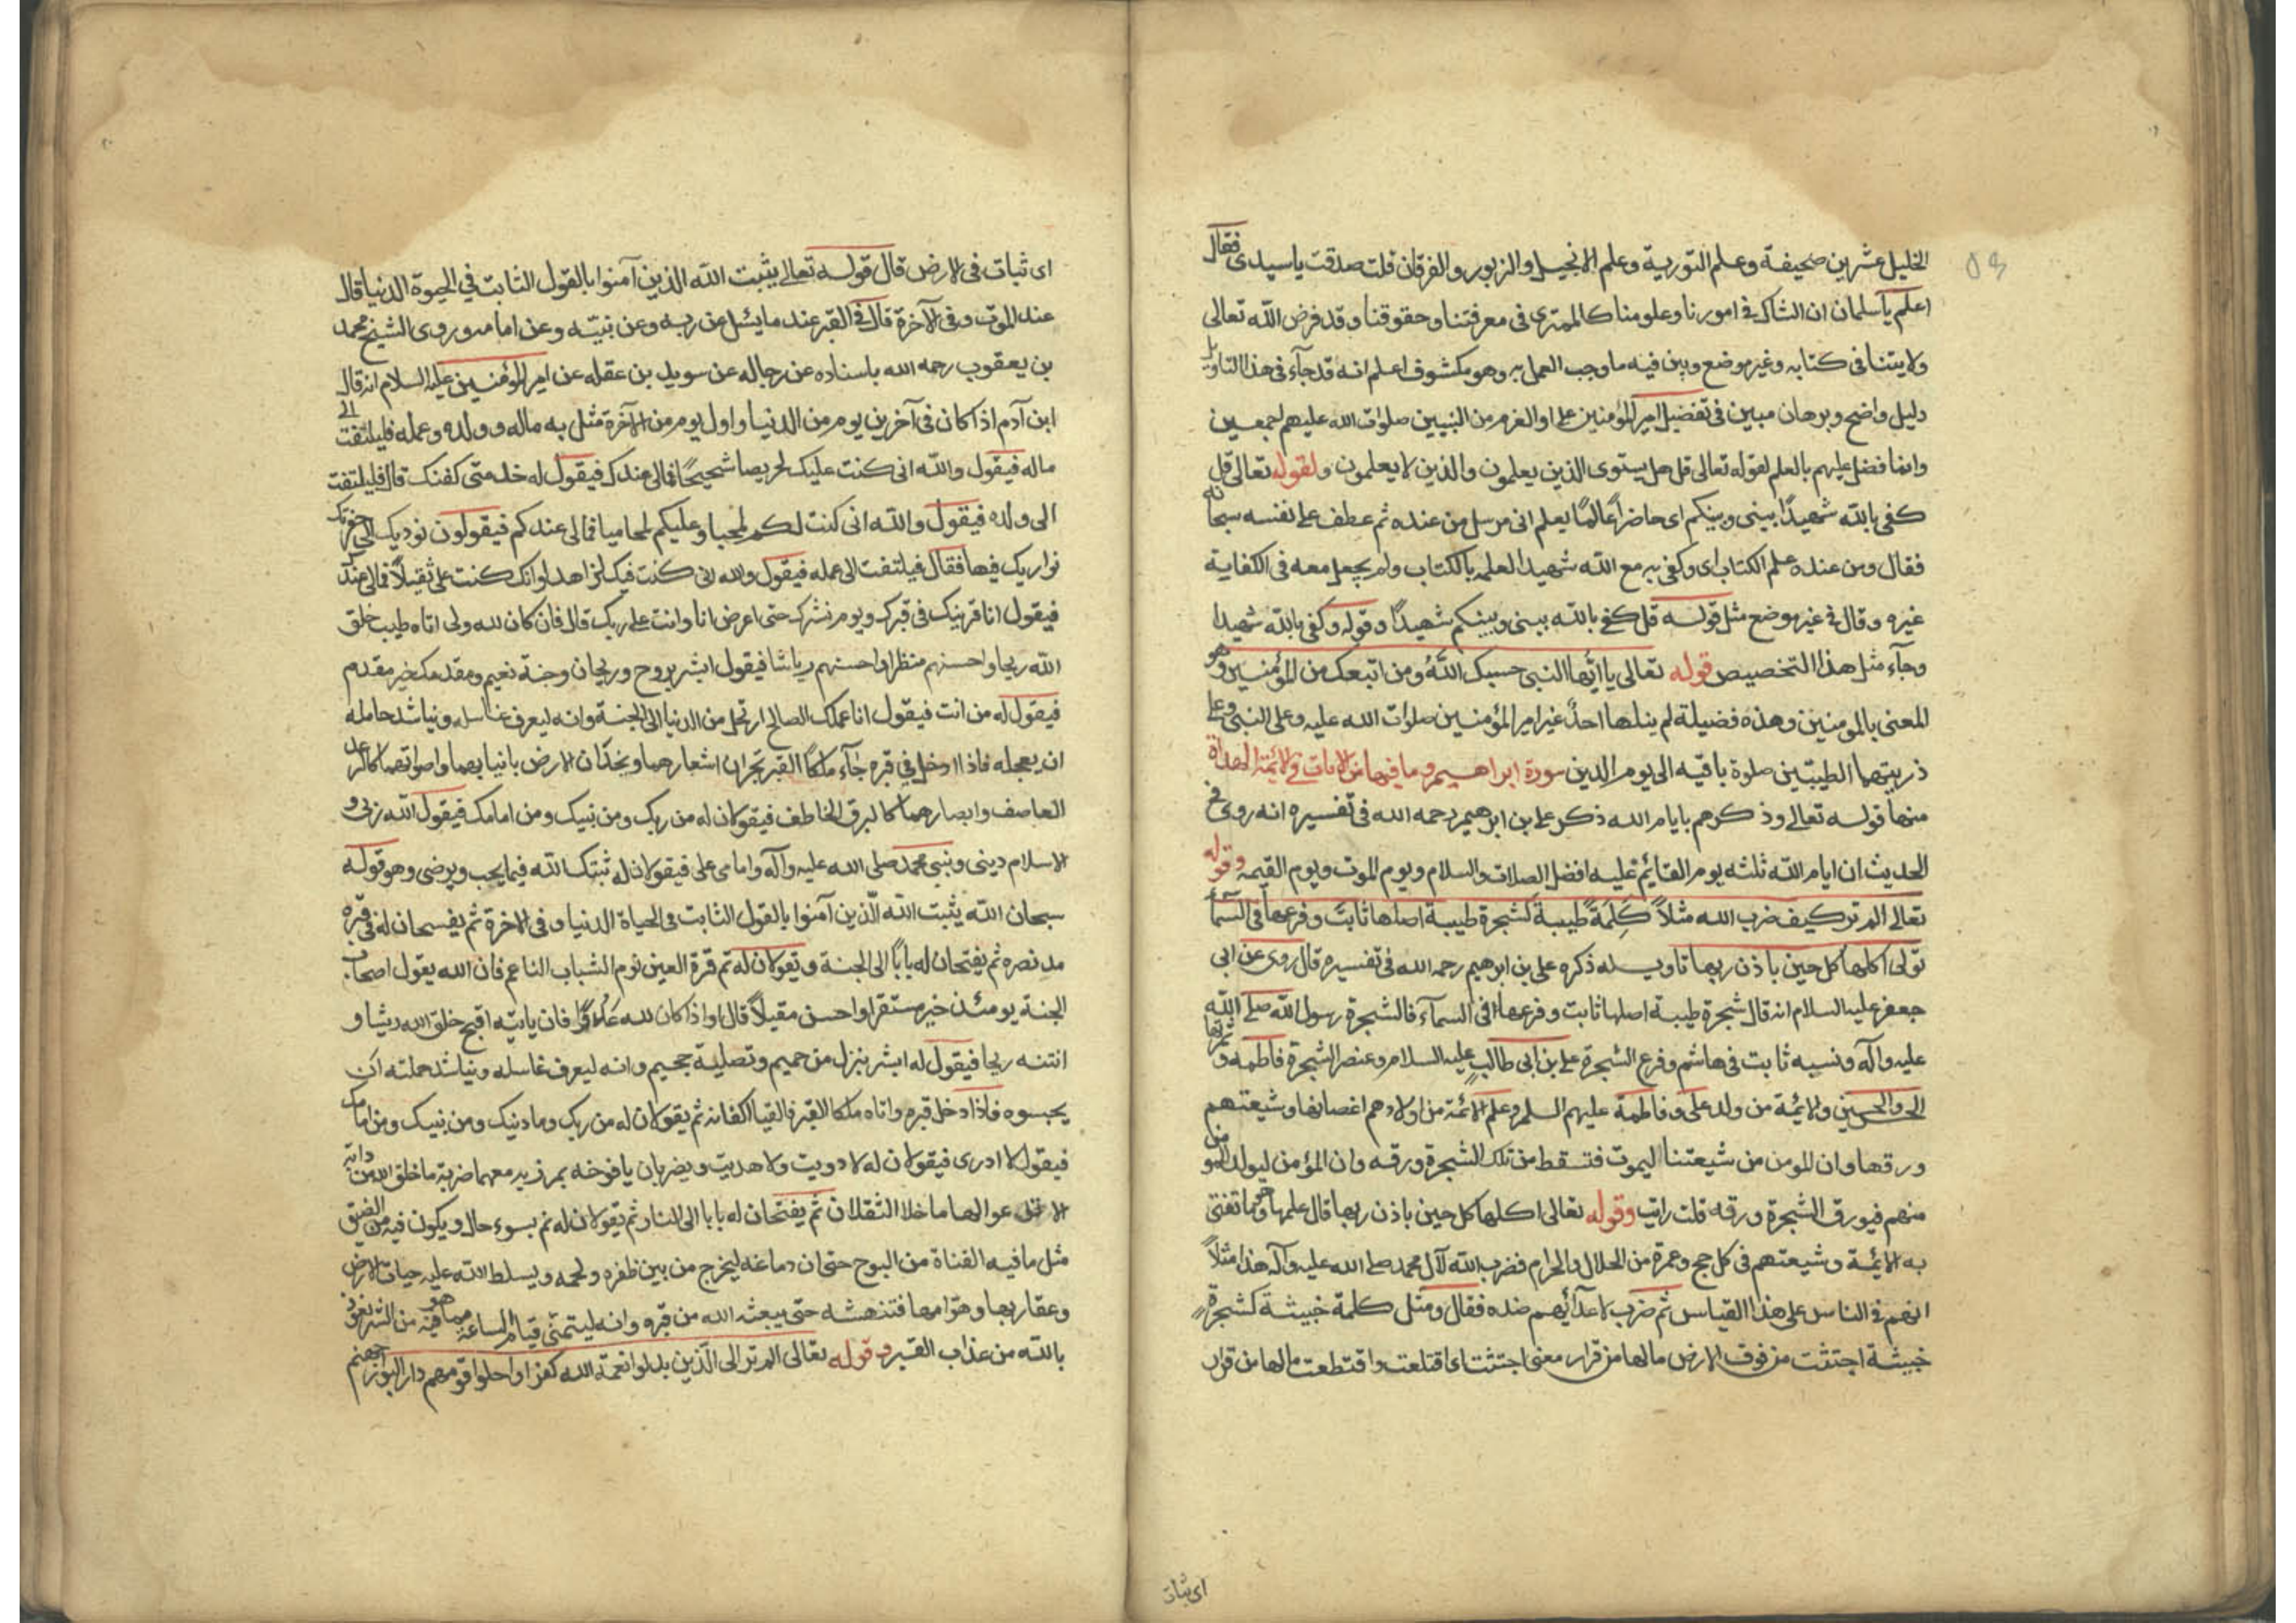 ٥٩
الخليل عشرين صحيفة وعلم التورية وعلم الانجيل والزبور والفرقان قلت صدقت ياسيدى فقال
اعلم ياسلمان ان الشاك فى امورنا وعلومنا كالممترى فى معرفتنا وحقوقنا وقد فرض الله تعالى
ولايتنا فى كتابه وغير موضع وبين فيه ما وجب العمل به وهو مكشوف اعلم انه قد جآء فى هذا التاويل
دليل واضح وبرهان مبين فى تفضيل امير المؤمنين على اولو العزم من النبيين صلوات الله عليهم اجمعين
وانما فضل عليهم بالعلم لقوله تعالى قل هل يستوى الذين يعلمون والذين لا يعلمون ولقوله تعالى قل
كفى بالله شهيدًا بينى وبينكم اى حاضرًا عالمًا يعلم انى مرسل من عنده ثم عطف على نفسه سبحانه
فقال ومن عنده علم الكتاب اى وكفى به مع الله شهيدا لعلمه بالكتاب ولم يجعل معه فى الكفاية
غيره وقال فى غير موضع مثل قوله قل كفى بالله بينى وبينكم شهيدًا وقوله وكفى بالله شهيدا
وجآء مثل هذا التخصيص قوله تعالى يا ايّها النبى حسبك اللهُ ومن اتبعك من المؤمنين وهو
المعنى بالمومنين وهذه فضيلة لم ينلها احدٌ غير امير المؤمنين صلوات الله عليه وعلى النبى وعلى
ذريتهما الطيبّين صلوة باقيه الى يوم الدين سورة ابراهيم وما فيها من الايات فى الائمة الهداة
منها قوله تعالى وذكرهم بايام الله ذكر على بن ابرهيم رحمه الله فى تفسيره انه روى فى
الحديث ان ايام الله ثلثه يوم القايم عليه افضل الصلات والسلام ويوم الموت ويوم القيمه وقوله
تعالى الم تر كيف ضرب الله مثلاً كَلِمَةً طيبةً كشجرة طيبة اصلها ثابت وفرعها فى السمآ
تؤتى اكلها كل حين باذن ربها تاويله ذكره على بن ابرهيم رحمه الله فى تفسيره قال روى عن ابى
جعفر عليه السلام انه قال شجرة طيبة اصلها ثابت وفرعها فى السمآء فالشجرة رسول الله صلى الله
عليه وآله ونسبه ثابت فى هاشم وفرع الشجرة على بن ابى طالب عليه السلام وعنصر الشجرة فاطمه وثمرتها
الحسن والحسين والائمة من ولد على وفاطمة عليهم السلم وعلم الائمة من اولادهم اغصانها وشيعتهم
ورقها وان المومن من شيعتنا ليموت فتسقط من تلك الشجرة ورقه وان المؤمن ليولد المومن
منهم فيورق الشجرة ورقه قلت رايت وقوله تعالى اكلها كل حين باذن ربها قال علمها هو ما تفتى
به الائمة وشيعتهم فى كل حج وعمرة من الحلال والحرام فضرب الله لآل محمد صلى الله عليه وآله هذا مثلاً
انهم فى الناس على هذا القياس ثم ضرب لاعدآئهم ضده فقال ومثل كلمة خبيثة كشجرة
خبيثة اجتثت من فوق الارض مالها من قرار معنى اجتثت اى اقتلعت واقتطعت مالها من قرار
اى ثبات
اى ثبات فى الارض قال قوله تعالى يثبت الله الذين آمنوا بالقول الثابت فى الحيوة الدنيا قال
عند الموت وفى الآخرة قال فى القبر عند ما يسئل عن ربه وعن نبيّه وعن امامه وروى الشيخ محمد
بن يعقوب رحمه الله باسناده عن رجاله عن سويد بن عقله عن امير المؤمنين عليه السلام انه قال
ابن آدم اذا كان فى آخرين يوم من الدنيا واول يوم من الآخرة مثل به ماله وولده وعمله فيلتفت الى
ماله فيقول والله انى كنت عليك لحريصا شحيحًا فمالى عندك فيقول له خذ منى كفنك قال فيلتفت
الى ولده فيقول والله انى كنت لكم لمحبا وعليكم لمحاميا فمالى عندكم فيقولون نوديك الى حفرتك
نواريك فيها فقال فيلتفت الى عمله فيقول والله انى كنت فيك لزاهد او انك كنت على ثقيلاً فمالى عندك
فيقول انا قرينك فى قبرك ويوم نشرك حتى اعرض انا وانت على ربك قال فان كان لله ولى اتاه طيب خلق
الله ريحا واحسنهم منظرا واحسنهم رياشا فيقول ابشر بروح وريحان وجنة نعيم ومقدمك خير مقدم
فيقول له من انت فيقول انا عملك الصالح ارتحل من الدنيا الى الجنة وانه ليعرف غاسله ويناشد حامله
ان يعجله فاذا ادخل فى قبره جآء ملكا القبر يجران اشعارهما ويخدّان الارض بانيابهما واصواتهما كالرعد
العاصف وابصارهما كالبرق الخاطف فيقولان له من ربك ومن نبيك ومن امامك فيقول الله ربى و
الاسلام دينى ونبى محمد صلى الله عليه وآله وامامى على فيقولان له ثبتك الله فيما يحب ويرضى وهو قوله
سبحان الله يثبت الله الّذين آمنوا بالقول الثابت فى الحياة الدنيا وفى الاخرة ثم يفسحان له فى قبره
مد نصره ثم يفتحان له بابًا الى الجنة و يقولان له نم قرة العين نوم الشباب الناعم فان الله يقول اصحاب
الجنة يومئذ خير مستقرا واحسن مقيلاً قال واذا كان لله عَدُوًّا فان ياتيه اقبح خلق الله ريشا و
انتنه ريحا فيقول له ابشر بنزل من حميم وتصلية جحيم وانه ليعرف غاسله ويناشد حملته ان
يحبسوه فاذا دخل قبره واتاه ملكا القبر فالقيا اكفانه ثم يقولان له من ربك وما دينك ومن نبيك ومن امامك
فيقول لا ادرى فيقولان له لا دريت ولا هديت ويضربان يافوخه بمرزبه معهما ضربة ما خلق الله من دابة
الا تذعر لها ما خلا الثقلان ثم يفتحان له بابا الى النار ثم يقولان له نم بسوء حال ويكون فيه من الضيق
مثل ما فيه القناة من الزج حتى ان دماغه ليخرج من بين ظفره ولحمه ويسلط الله عليه حيات الارض
وعقاربها وهوامها فتنهشه حتى يبعثه الله من قبره وانه ليتمنى قيام الساعة مما هو فيه من الشر نعوذ
بالله من عذاب القبر وقوله تعالى الم تر الى الّذين بدلوا نعمة الله كفرا واحلوا قومهم دار البوار جهنم